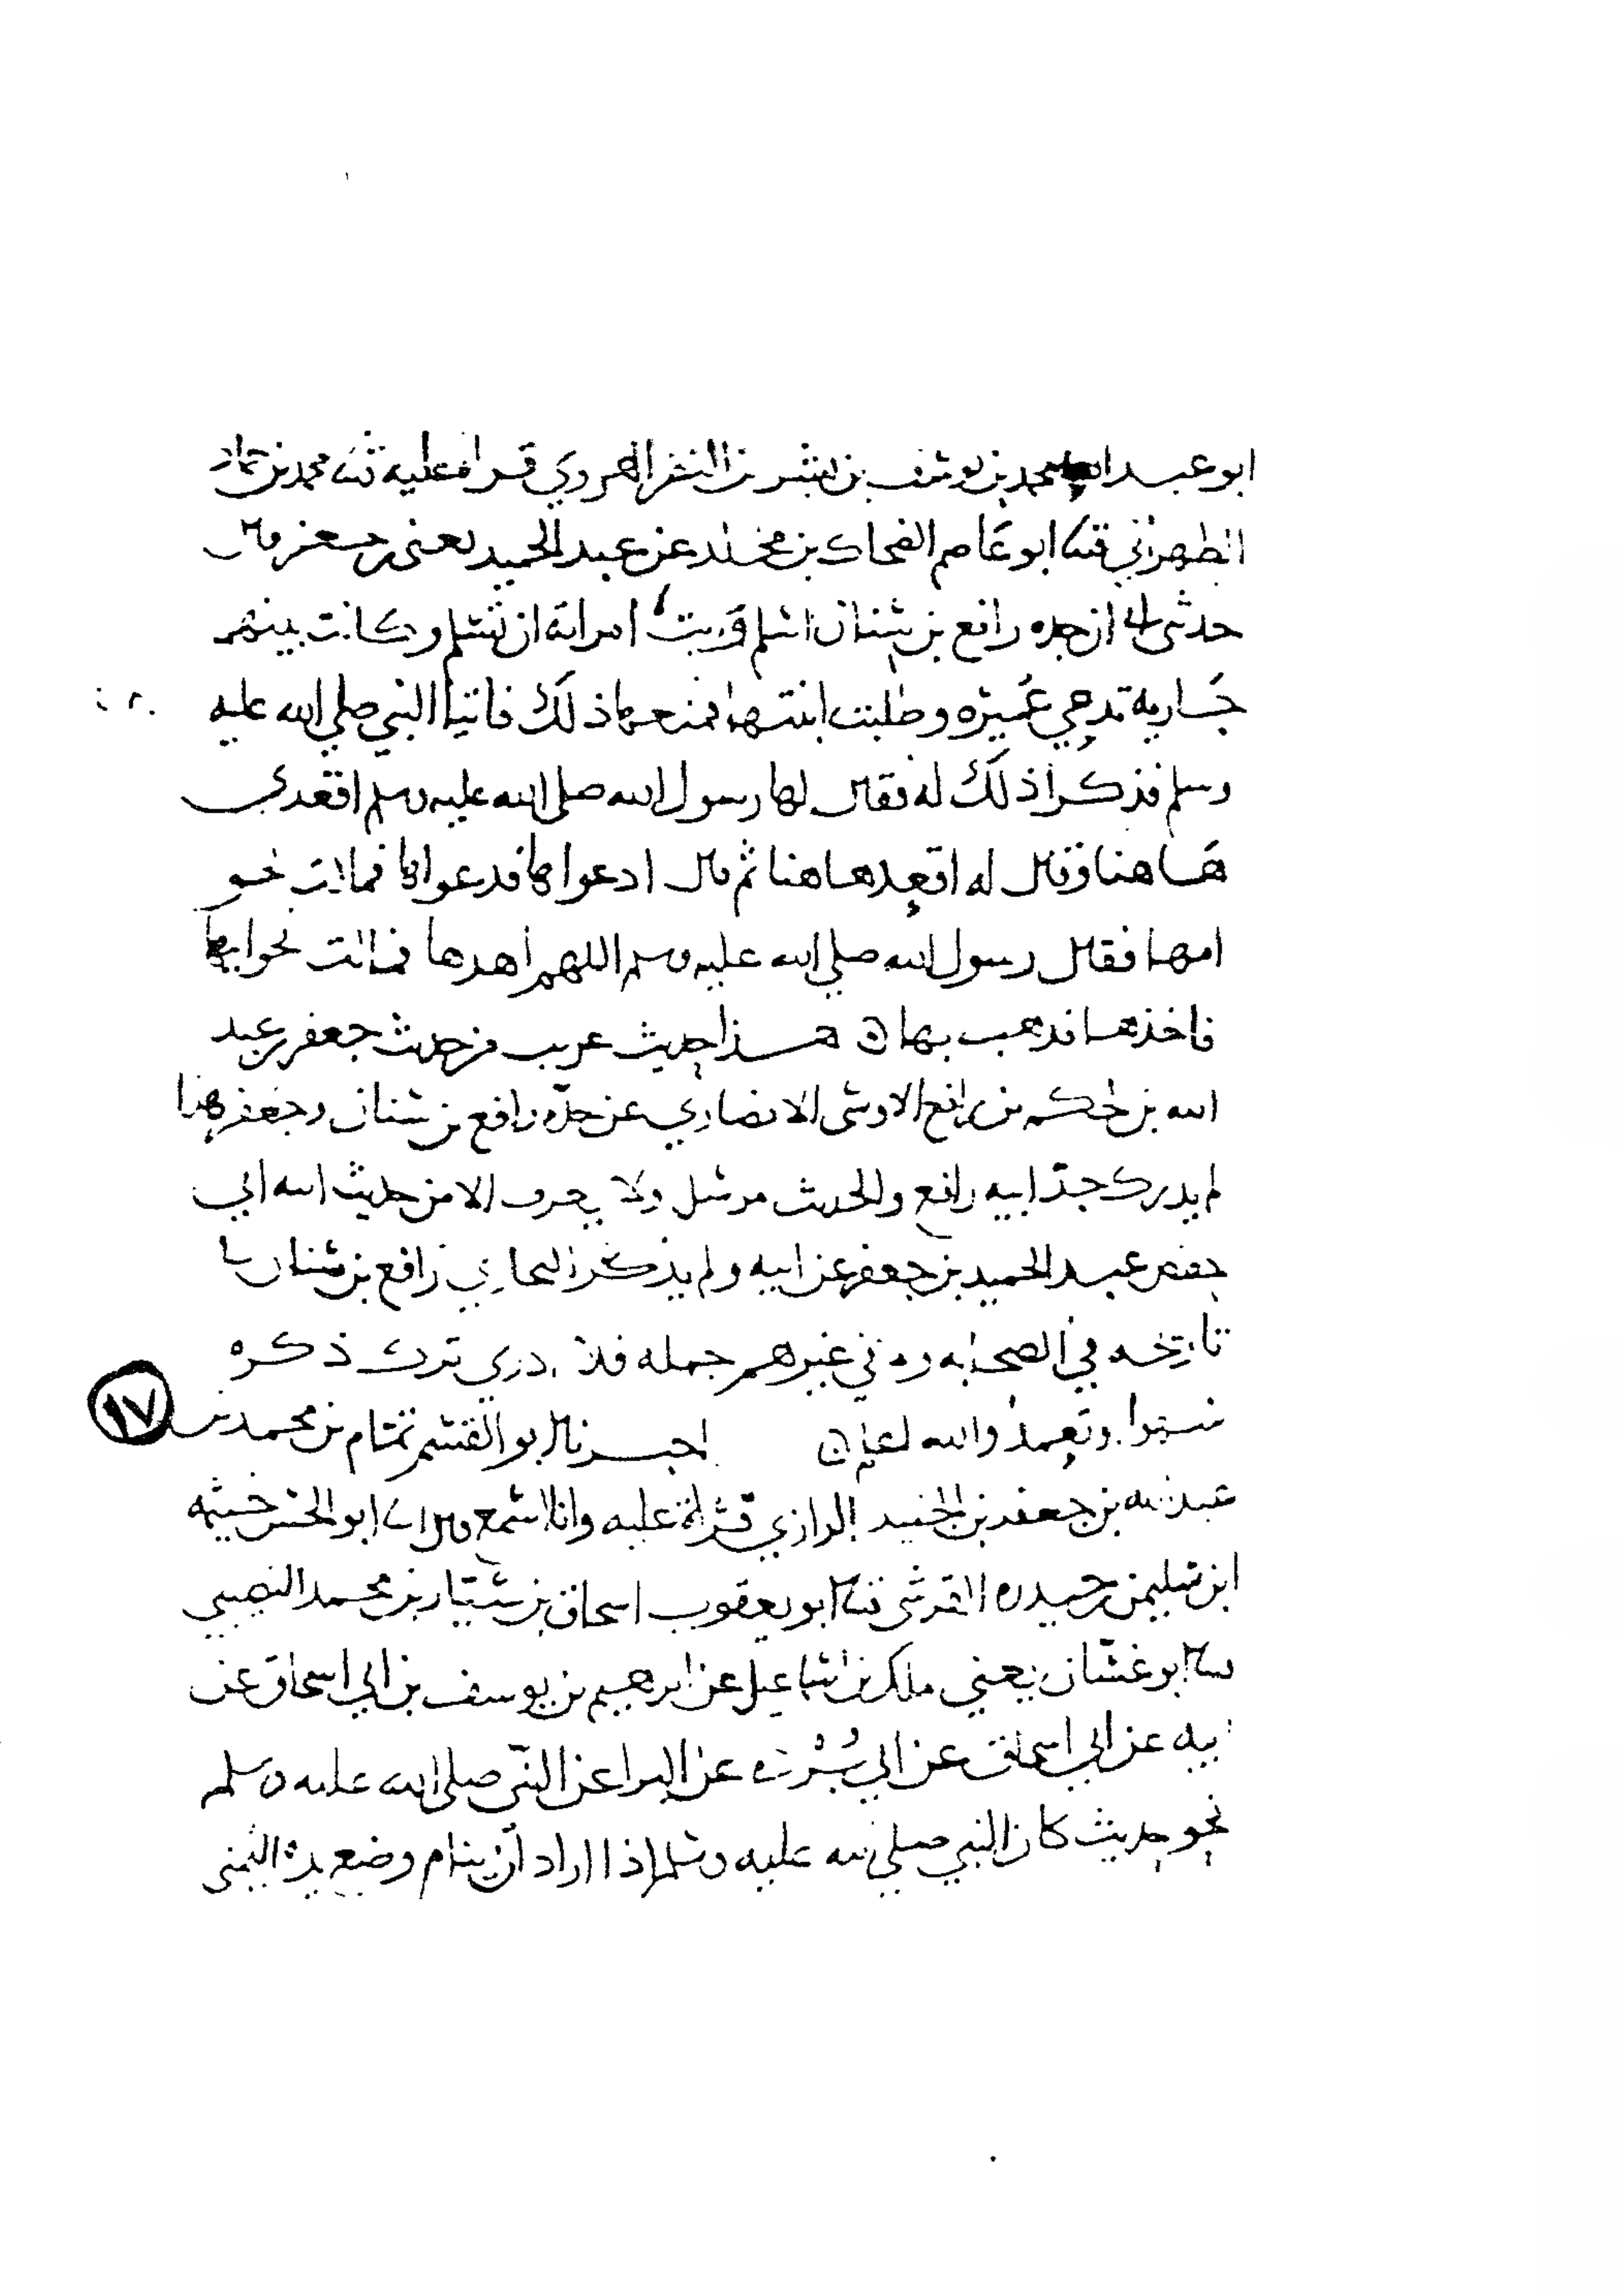 ابو عبد الله محمد بن يوسف بن بشر بن النضر الهروي قراة عليه ثنا محمد بن حماد
الطهراني ثنا ابو عاصم الضحاك بن مخلد عن عبد الحميد يعني بن جعفر قال
حدثني ابي ان جده رافع بن سنان اسلم وابت امراته ان تسلم وكانت بينهم
جارية تدعي عميرة وطلبت ابنتها فمنعها ذلك فاتيا النبي صلي الله عليه
وسلم فذكرا ذلك له فقال لها رسول الله صلى الله عليه وسلم اقعدي
هاهنا وقال له اقعد هاهنا ثم قال ادعواها فدعواها فمالت نحو
امها فقال رسول الله صلي الله عليه وسلم اللهم اهدها فمالت نحو ابيها
فاخذها فذهب بها ن هذا حديث غريب من حديث جعفر بن عبد
الله بن الحكم بن رافع الاوسي الانصاري عن جده رافع بن سنان وجعفر هذا
لم يدرك جد ابيه رافع والحديث مرسل ولا يعرف الا من حديث ابنه ابي
حفص عبد الحميد بن جعفر عن ابيه ولم يذكر البخاري رافع بن سنان في
تاريخه في الصحابه ولا في غيرهم جمله فلا ادري ترك ذكره
او تعمدا والله اعلم ن اخبرنا ابو القسم تمام بن محمد بن
عبد الله بن جعفر بن الجنيد الرازي قراة عليه وانا اسمع قال ابنا ابو الحسن خيثمه
ابن سليمن بن حيدره القرشي ثنا ابو يعقوب اسحاق بن سيار بن محمد النصيبي
ثنا ابو غسان يعني ملك بن اسماعيل عن ابرهيم بن يوسف بن ابي اسحاق عن
ابيه عن ابي اسحاق عن ابي بردة عن البرا عن النبي صلى الله عليه وسلم
نحو حديث كان النبي صلي الله عليه وسلم اذا اراد ان ينام وضع يده اليمني
١٧